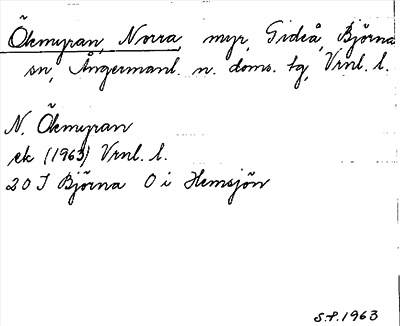 Ökmyran, Norra, myr, Gideå, Björna
sn, Ångermanl. n. doms. tg, Vrnl. l.
N. Ökmyran
ek (1963) Vrnl. l.
20 J Björna O i Hemsjön
S.P. 1963